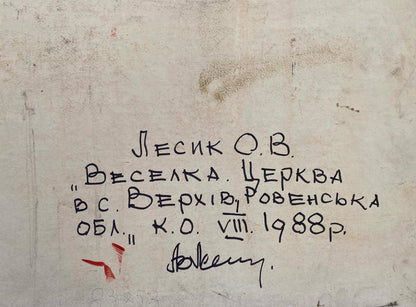 Лесик О.В.
„Веселка. Церква
в с. Верхів, Ровенська
обл.„ к.о. VIII. 1988р.